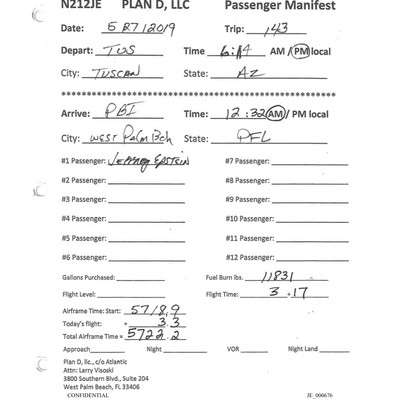 N212JE PLAN D, LLC Passenger Manifest
Date: 5 / 27 / 2019 Trip: 143
Depart: TUS Time 6:14 AM / PM local
City: TUSCAN State: AZ
Arrive: PBI Time: 12:32 AM / PM local
City: WEST PALM BCH State: FL
#1 Passenger: JEFFREY EPSTEIN #7 Passenger:
#2 Passenger: #8 Passenger:
#3 Passenger: #9 Passenger:
#4 Passenger: #10 Passenger:
#5 Passenger: #11 Passenger:
#6 Passenger: #12 Passenger:
Gallons Purchased: Fuel Burn lbs. 11831
Flight Level: Flight Time: 3 + 17
Airframe Time: Start: 5718.9
Today's flight: + 3.3
Total Airframe Time = 5722.2
Approach Night VOR Night Land
Plan D, llc., c/o Atlantic
Attn: Larry Visoski
3800 Southern Blvd., Suite 204
West Palm Beach, FL 33406
CONFIDENTIAL JE_000676